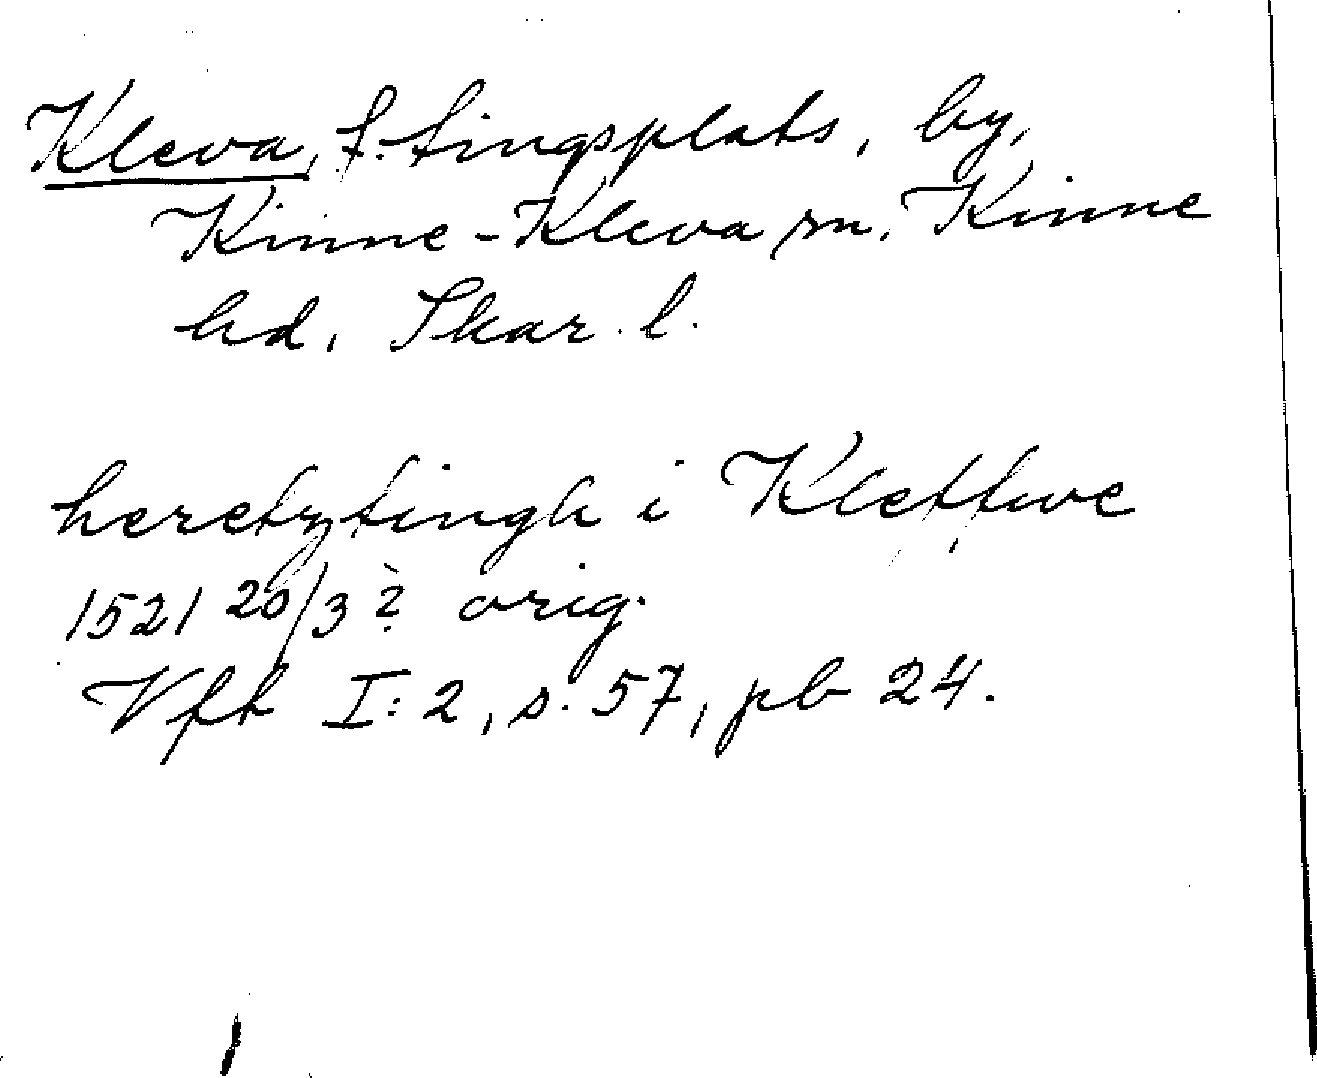 Kleva, f. tingsplats, by,
Kinne-Kleva sn. Kinne
hd. Skar. l.
heretztingh i Kleffwe
1521 20/3? orig.
Vfk I:2, s. 57, pb 24.